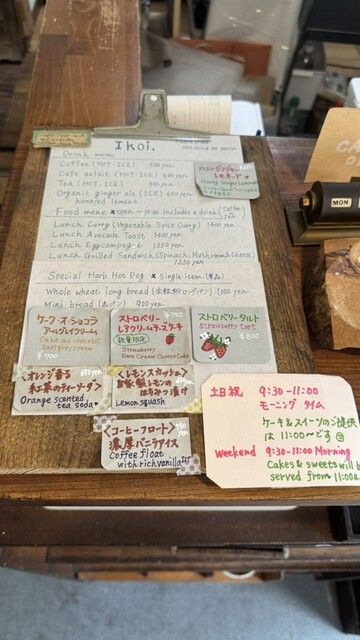 Ikoi.
Drink menu
Coffee (HOT・ICE) 500 yen
Cafe aulait (HOT・ICE)
Tea (HOT・ICE)
Organic ginger ale (ICE) 650 yen
Food menu
Includes a drink
Lunch Curry (Vegetable Spice Curry) 1400 yen
Lunch Avocado Toast 1400 yen
Lunch Eggcampagne 1250 yen
Lunch Grilled Sandwich (Spinach, Mushroom & Cheese)
1250 yen
Special Herb Hot Dog × single item (単品)
Whole wheat long bread (全粒粉ロングパン) 1000 yen
Mini bread 900 yen
ハニージンジャー
レモネード
Honey Ginger Lemonade
ケーク・オ・ショコラ
アールグレイクリーム
Cake au chocolat
Earl grey cream
¥700
¥750
ストロベリー
レアクリームチーズケーキ
数量限定
Strawberry
Rare Cream Cheese Cake
ストロベリータルト
Strawberry tart
¥800
<オレンジ香る
紅茶のティーソーダ>
Orange scented
tea soda
<レモンスカッシュ>
自家製レモンの
はちみつ漬け
Lemon squash
<コーヒーフロート>
濃厚バニラアイス
Coffee float
with rich vanilla
土日祝 9:30-11:00
モーニング タイム
ケーキ&スイーツのご提供
は 11:00〜です
Weekend 9:30-11:00 Morning
Cakes & sweets will b
served from 11:00a
MON